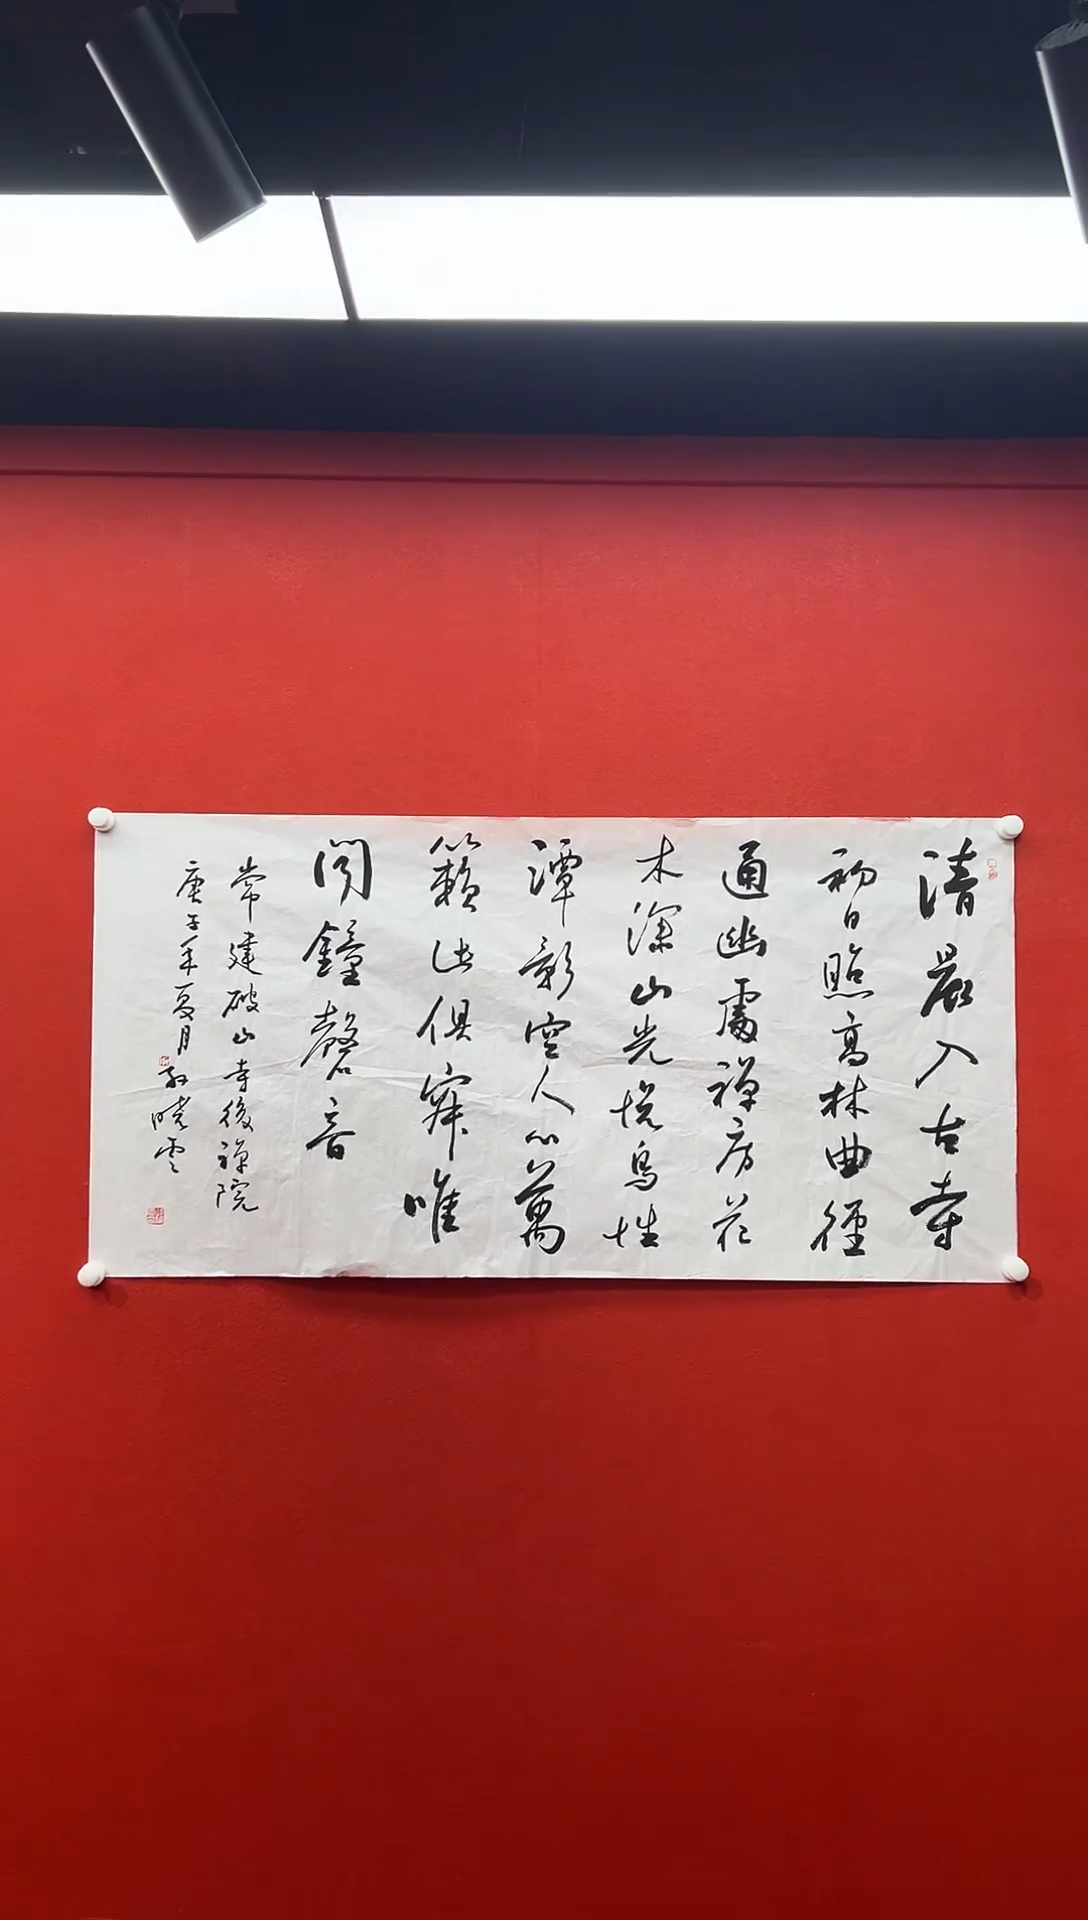 清晨入古寺
初日照高林曲徑
通幽處禪房花
木深山光悅鳥性
潭影空人心萬
籟此俱寂唯
聞鐘磬音
常建破山寺後禪院
庚子年夏月孫曉雲